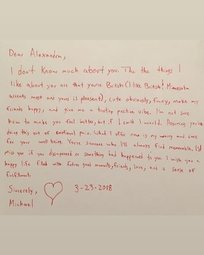 Dear Alexandra,
I don't know much about you. The the things I
like about you are that you're British (I like British!
accents most and yours is pleasant), cute obviously, funny, make my
friends happy, and give me a healing positive vibe. I'm not sure
how to make you feel better, but if I could I would.
this out of emotional pain. What I offer you is my worry and care
for your well being. You're someone who I'll always find memorable. I'd
miss you if you disappeared or something bad happened to you. I wish you a
happy life filled with future good moments, friends, love, and a sense of
fulfillment.
Sincerely,
Michael
3-23-2018